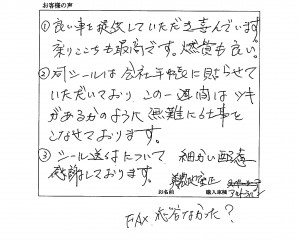 お客様の声
① 良い車を提供していただき喜んでいます。
乗りごこちも最高です。燃費も良い。
② 対シールは会社手帳に貼らせて
いただいており この一週間はツキ
があるかのように 無難に仕事を
こなせております。
③ シール送付について 細かい配慮
感謝しております。
お名前
購入車種
FAX 応答なかった？